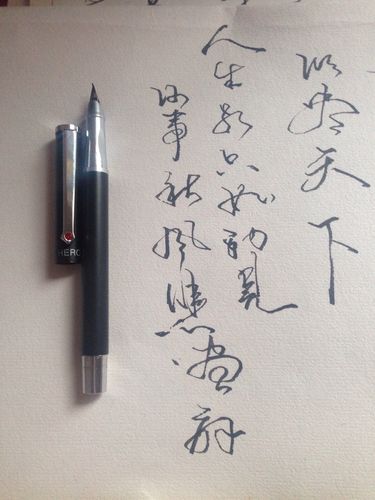 尽天下
人生若只如初见
何事秋风悲画扇
HERO